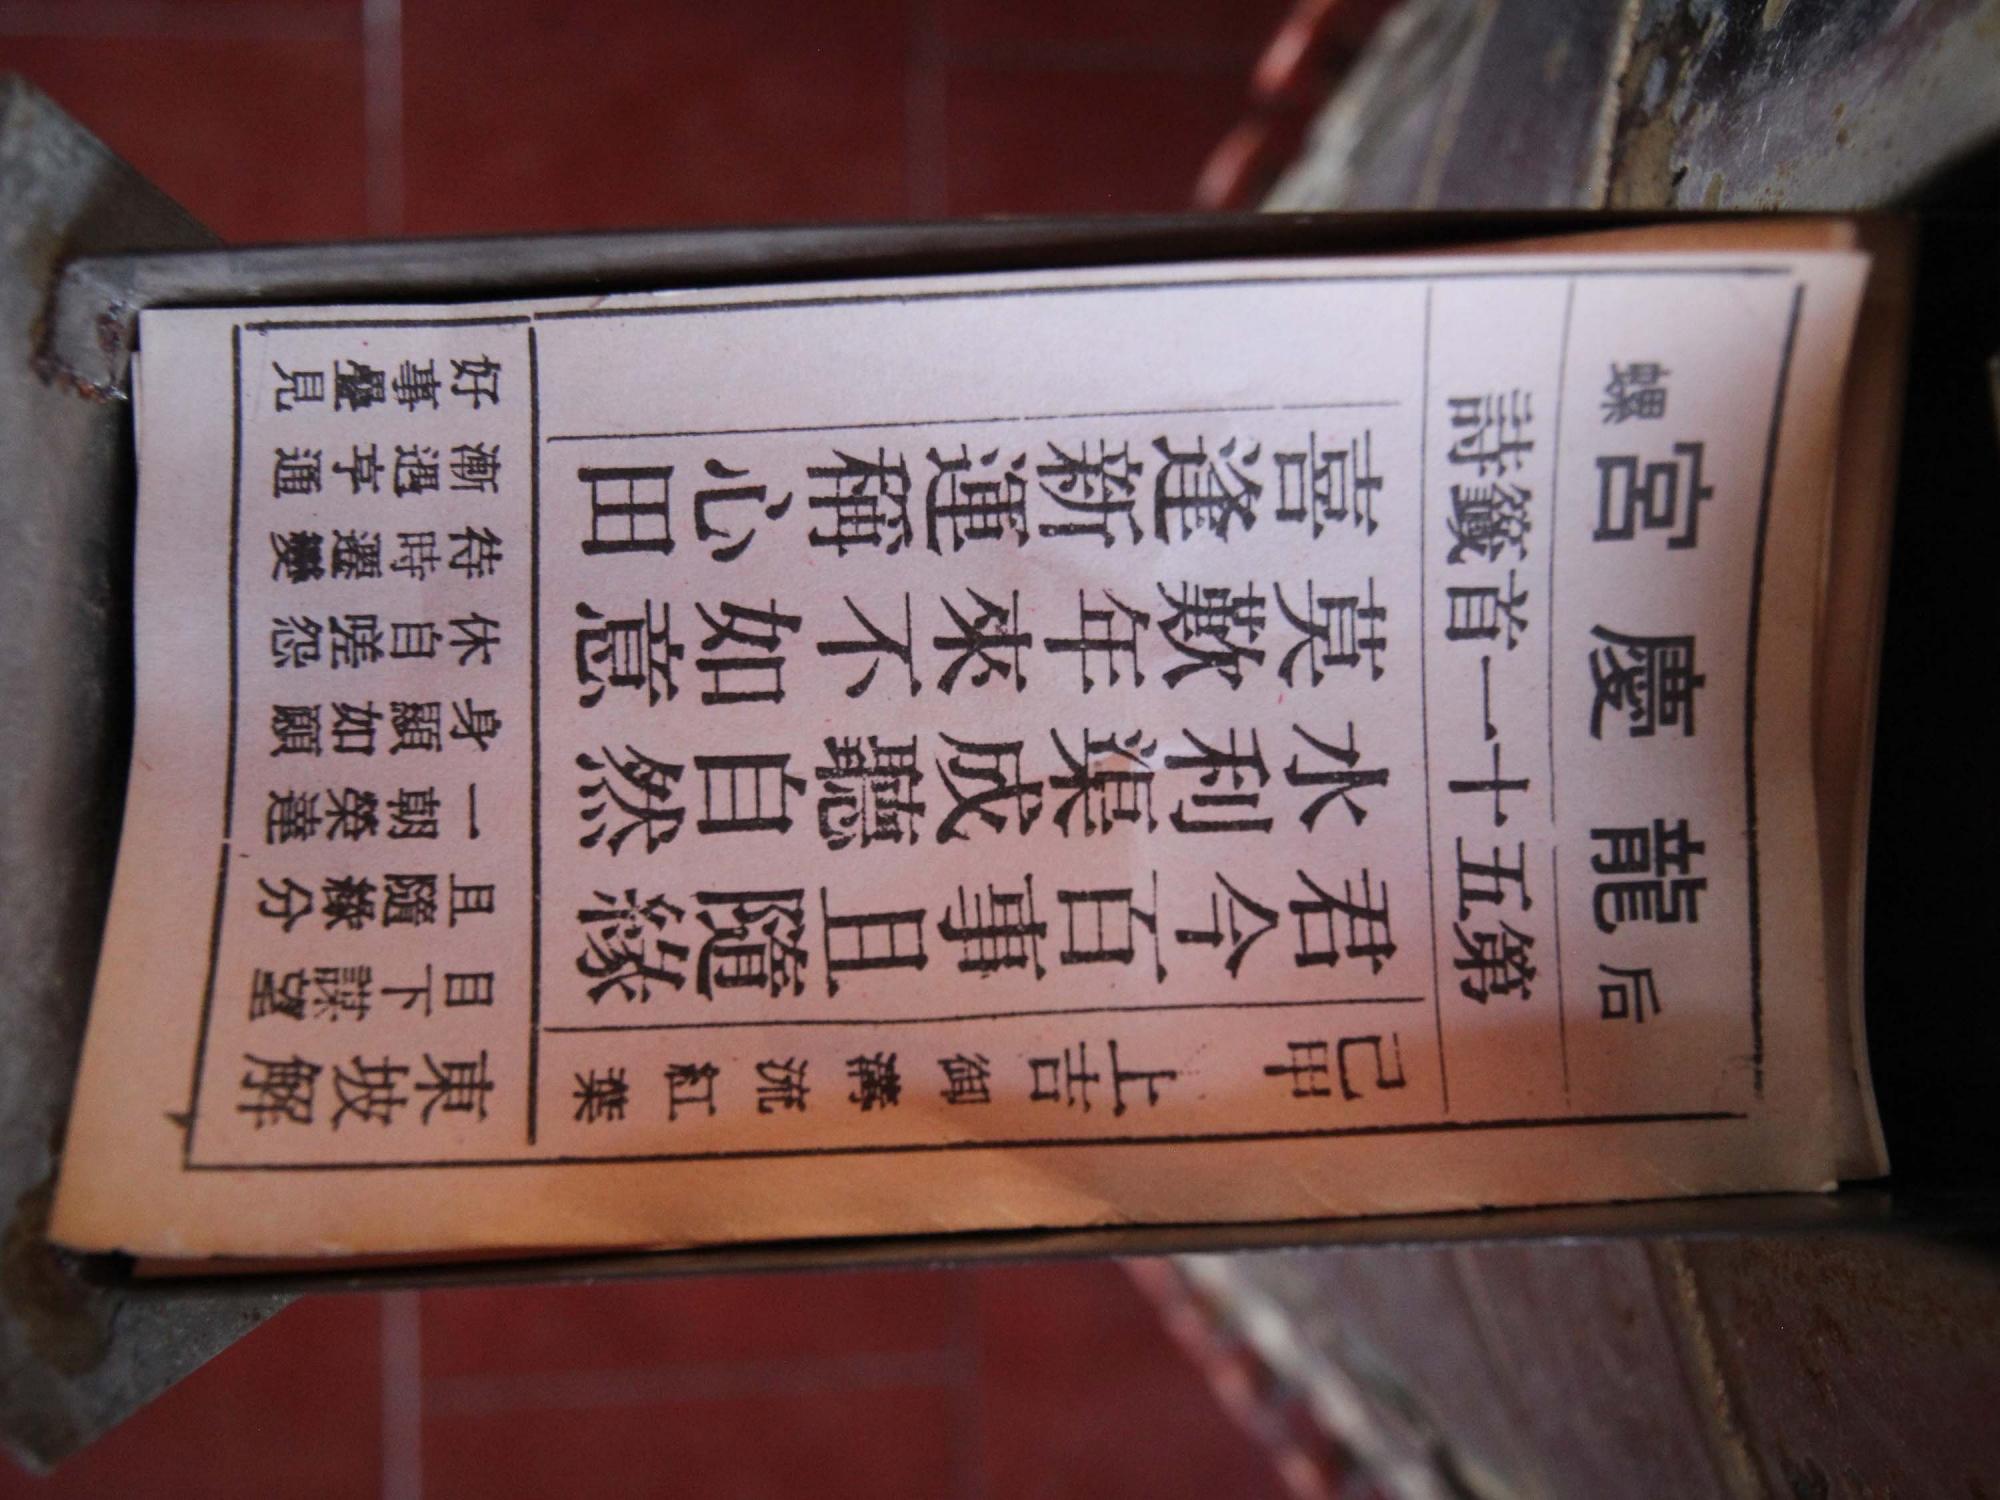 后龍慶宮螺
第五十一首籤詩
己甲 上吉 御溝流紅葉
君今百事且隨緣
水利渠成聽自然
莫歎年來不如意
喜逢新運稱心田
東坡解
目下謀望
且隨緣分
一朝榮達
身顯如願
休自嗟怨
待時遷變
漸遇亨通
好事疊見